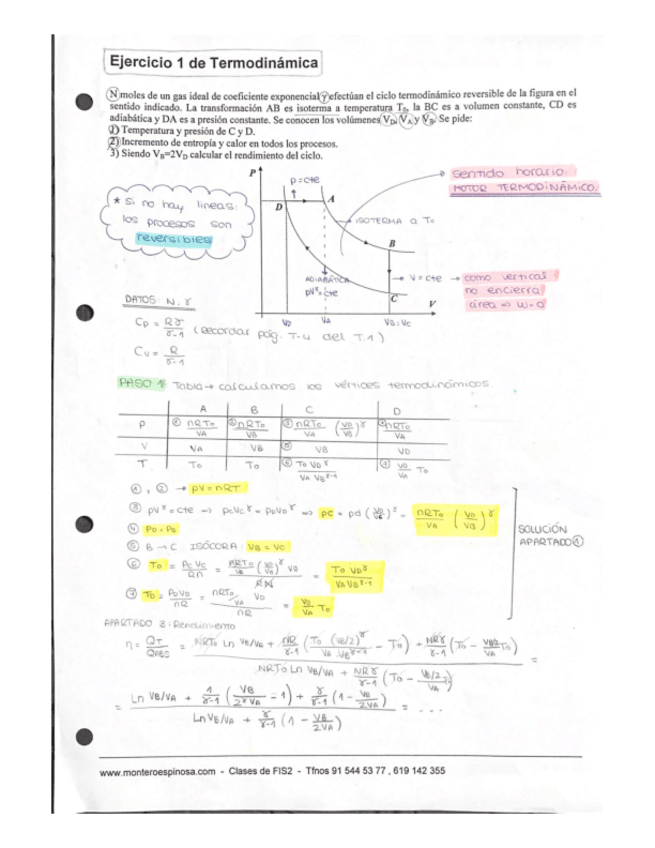 Ejercicio 1 de Termodinámica
N moles de un gas ideal de coeficiente exponencial γ efectúan el ciclo termodinámico reversible de la figura en el
sentido indicado. La transformación AB es isoterma a temperatura T₀, la BC es a volumen constante, CD es
adiabática y DA es a presión constante. Se conocen los volúmenes V_D, V_A y V_B. Se pide:
1) Temperatura y presión de C y D.
2) Incremento de entropía y calor en todos los procesos.
3) Siendo V_B=2V_D calcular el rendimiento del ciclo.
sentido horario:
MOTOR TERMODINÁMICO.
* Si no hay lineas:
los procesos son
reversibles
P
p=cte
D
A
ISOTERMA a To
B
ADIABÁTICA
pV^γ=cte
V=cte → como vertical
no encierra
área ⇒ W=0
C
V
VD
VA
VB=VC
DATOS: N, γ
Cp = Rγ/γ-1 (Recordar pág. T-4 del T.1)
Cv = R/γ-1
PASO 1: Tabla → calculamos los vértices termodinámicos.
A B C D
P ② nRTo/VA ② nRTo/VB ③ nRTo/VA (VD/VB)^γ ④ nRTo/VA
V VA VB ⑤ VB VD
T To To ⑥ To VD^γ/VA VB^γ-1 ⑦ VD/VA To
①, ② → pV=nRT
③ pV^γ=cte ⇒ pcVc^γ = pDVD^γ ⇒ pc = pd (VD/VB)^γ = nRTo/VA (VD/VB)^γ
④ PD = PA
⑤ B → C ISÓCORA: VB = VC
⑥ Tc = Pc Vc/Rn = nRTo/VA (VD/VB)^γ VB/RN = To VD^γ/VA VB^γ-1
⑦ TD = PDVD/nR = nRTo/VA VD/nR = VD/VA To
SOLUCIÓN
APARTADO ①
APARTADO 3: Rendimiento
η = QT/QABS = NRTo Ln VB/VA + NR/γ-1 (To (VB/2)^γ/VA VB^γ-1 - To) + NRγ/γ-1 (To - VB/2/VA To)/NRTo Ln VB/VA + NRγ/γ-1 (To - VB/2/VA) =
= Ln VB/VA + 1/γ-1 (VB/2^γ VA - 1) + γ/γ-1 (1 - VB/2VA)/Ln VB/VA + γ/γ-1 (1 - VB/2VA) = ...
www.monteroespinosa.com - Clases de FIS2 - Tfnos 91 544 53 77 , 619 142 355